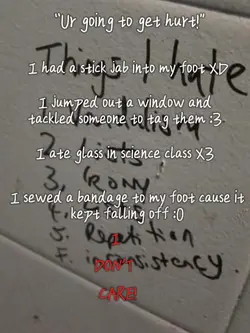 “Ur going to get hurt!”
Things I hate
I had a stick jab into my foot XD
I jumped out a window and
tackled someone to tag them :3
2.
I ate glass in science class X3
3. Irony
I sewed a bandage to my foot cause it
kept falling off :O
5. Repetition
I
DON'T
CARE!
inconsistency.